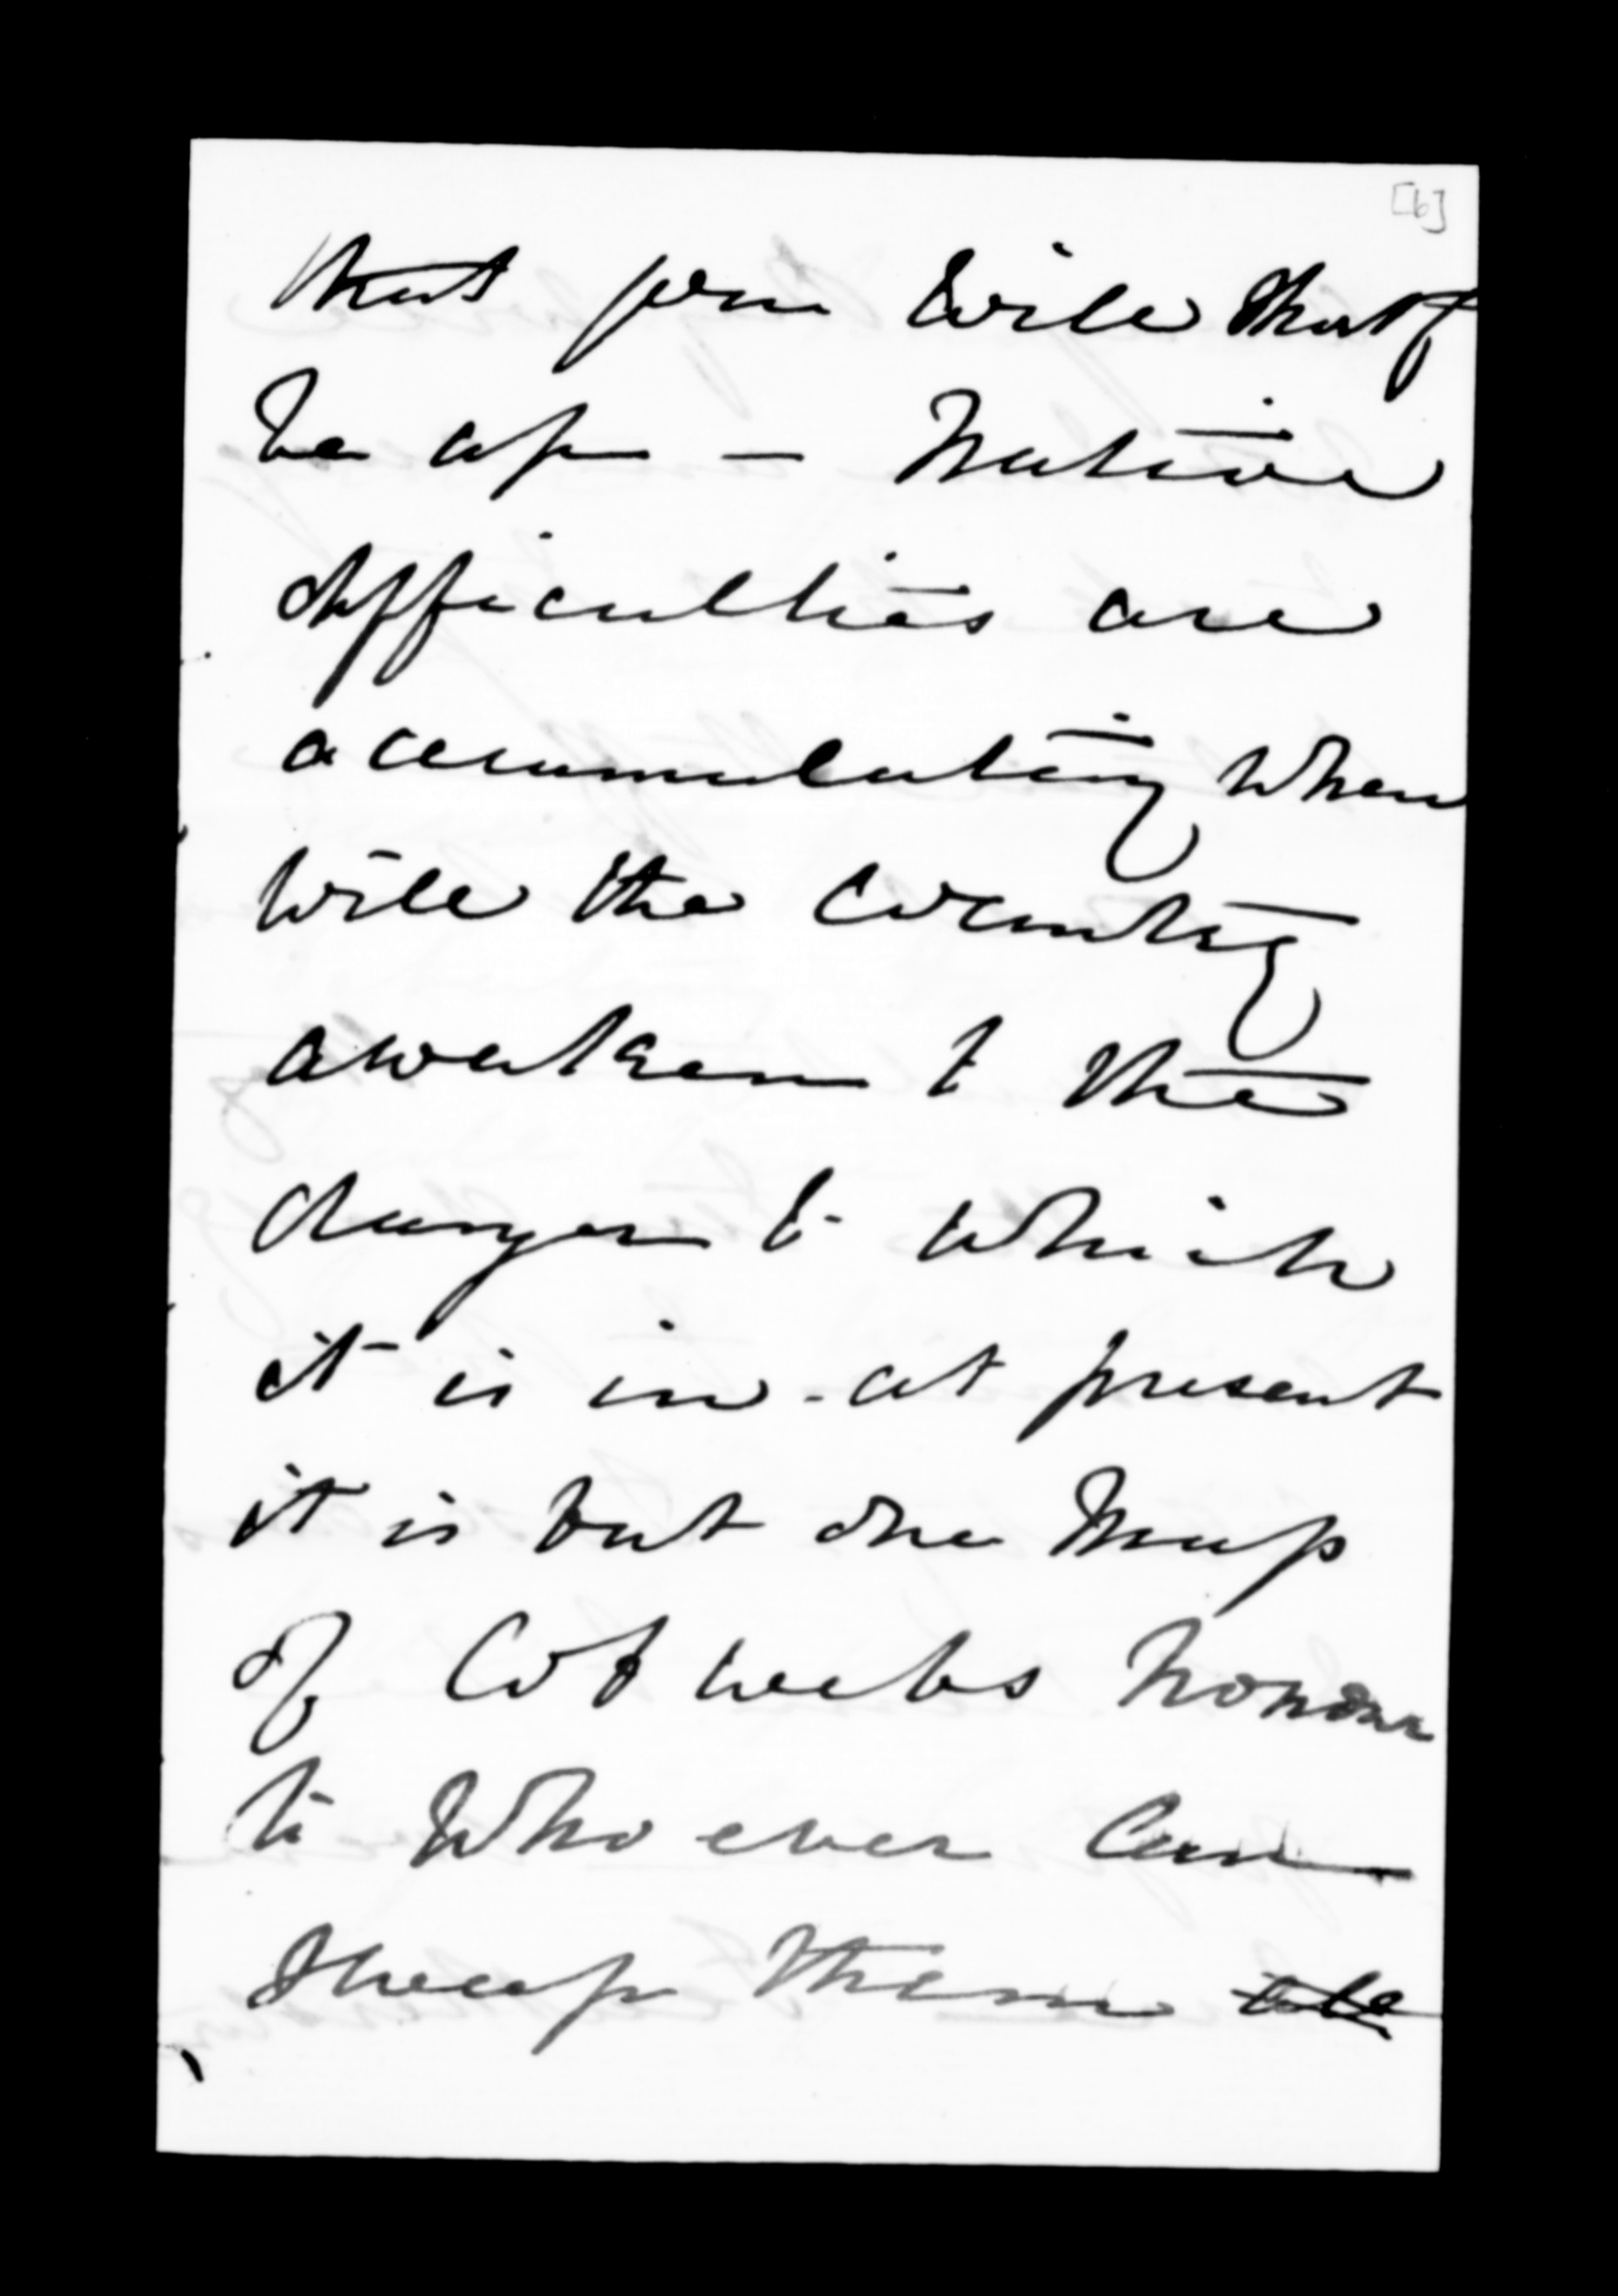 [6]
that you will shortly
be up — Native
difficulties are
accumulating when
will the country
awaken to the
danger to which
it is in - at present
it is but one mass
of Cob webs honour
to Who ever can
sweep them